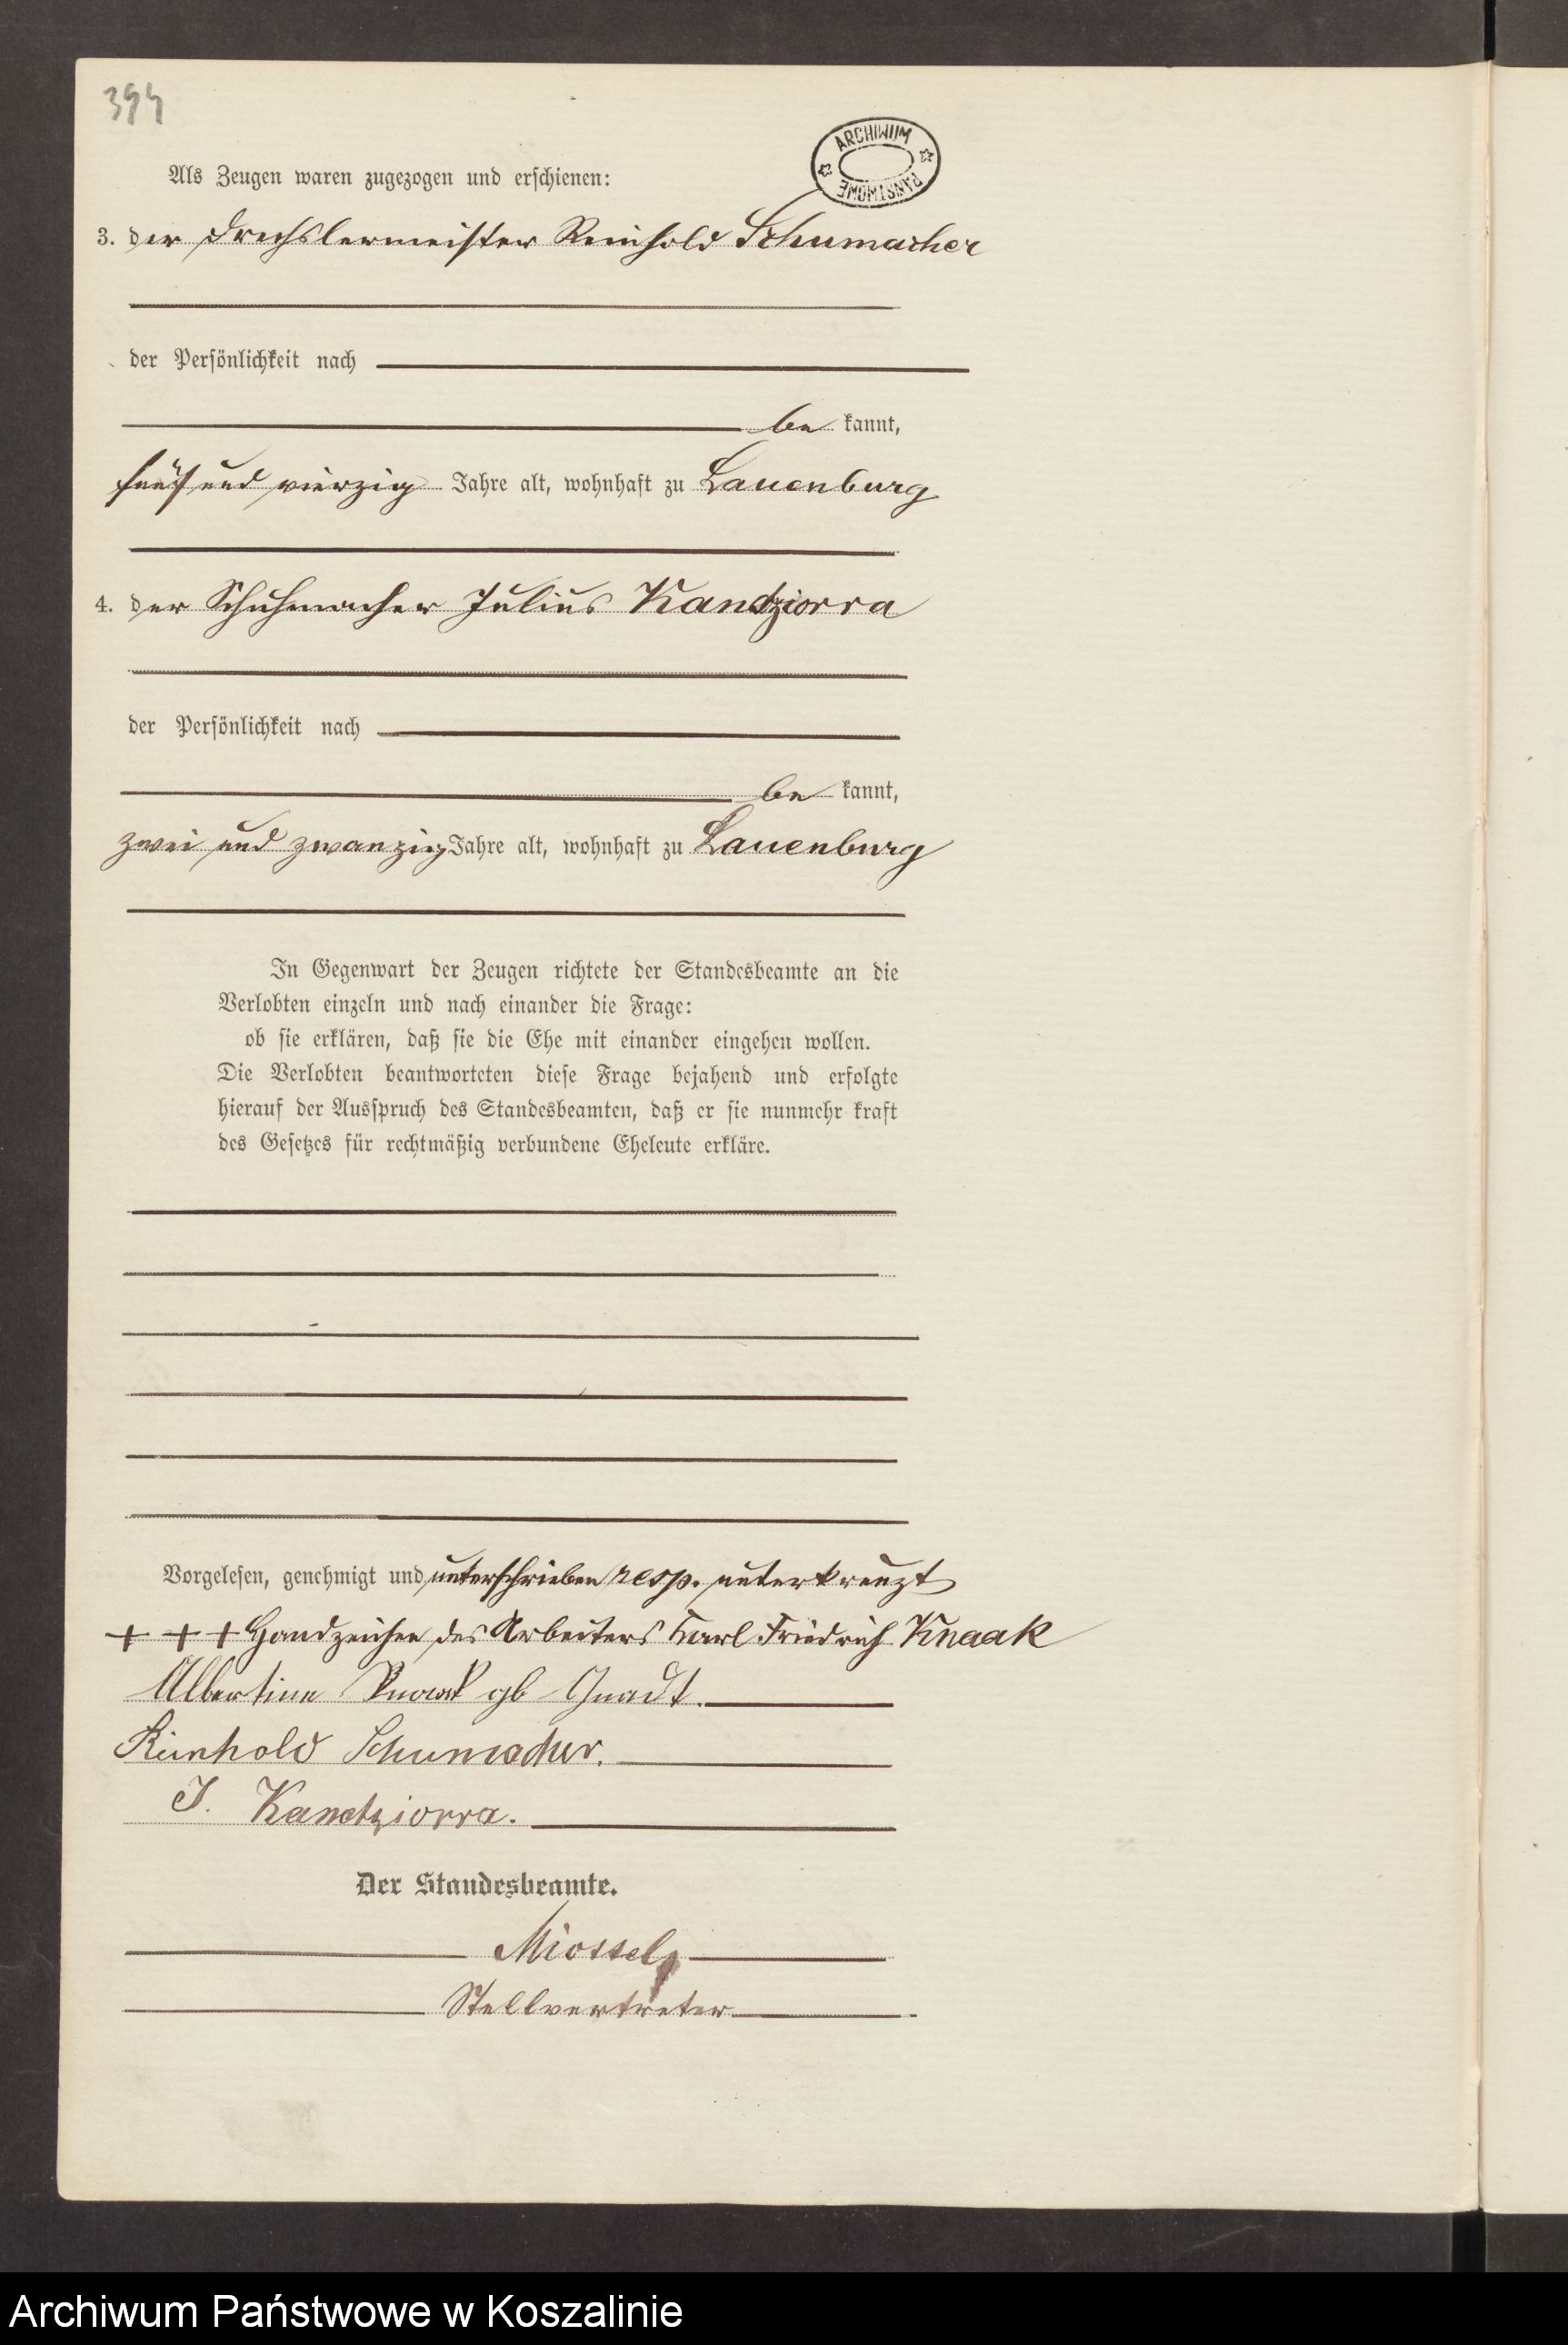 394
ARCHIWUM
PAŃSTWOWE
Als Zeugen waren zugezogen und erschienen:
3. der Drechslermeister Reinhold Schumacher
der Persönlichkeit nach
be kannt,
fünf und vierzig Jahre alt, wohnhaft zu Lauenburg
4. der Schuhmacher Julius Kandziorra
der Persönlichkeit nach
be kannt,
zwei und zwanzig Jahre alt, wohnhaft zu Lauenburg
In Gegenwart der Zeugen richtete der Standesbeamte an die
Verlobten einzeln und nach einander die Frage:
ob sie erklären, daß sie die Ehe mit einander eingehen wollen.
Die Verlobten beantworteten diese Frage bejahend und erfolgte
hierauf der Ausspruch des Standesbeamten, daß er sie nunmehr kraft
des Gesetzes für rechtmäßig verbundene Eheleute erkläre.
Vorgelesen, genehmigt und unterschrieben resp. unterkreuzt
+ + + Handzeichen des Arbeiters Karl Friedrich Knaak
Albertine Knaak gb Gnadt.
Reinhold Schumacher.
J. Kandziorra.
Der Standesbeamte.
Stellvertreter
Archiwum Państwowe w Koszalinie